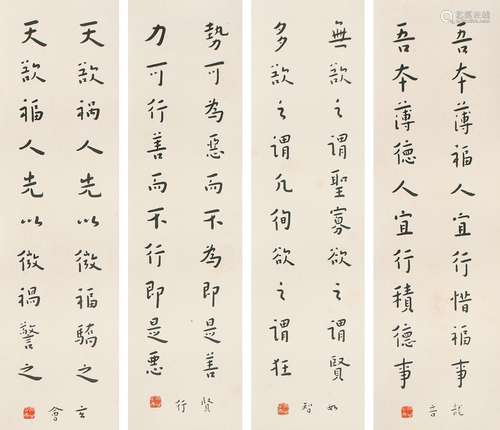 吾本薄福人宜行惜福事
吾本薄德人宜行積德事
龍音
無欲之謂聖寡欲之謂賢
多欲之謂凡徇欲之謂狂
如智
勢可為惡而不為即是善
力可行善而不行即是惡
賢行
天欲禍人先以微福驕之
天欲福人先以微禍警之
玄會